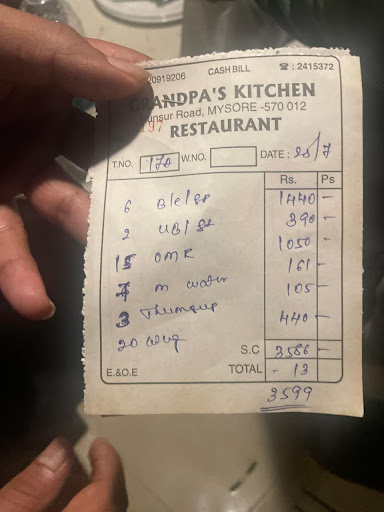 20919206 CASH BILL ☎ : 2415372
GRANDPA'S KITCHEN
unsur Road, MYSORE -570 012
RESTAURANT
T.NO. 17A W.NO. DATE : 25/7
Rs. Ps
6 1440 -
2 390 -
15 OMR 1050 -
7 m water 161 -
3 Thumsup 105 -
20 440 -
S.C 3586 -
E.&O.E TOTAL - 13
3599